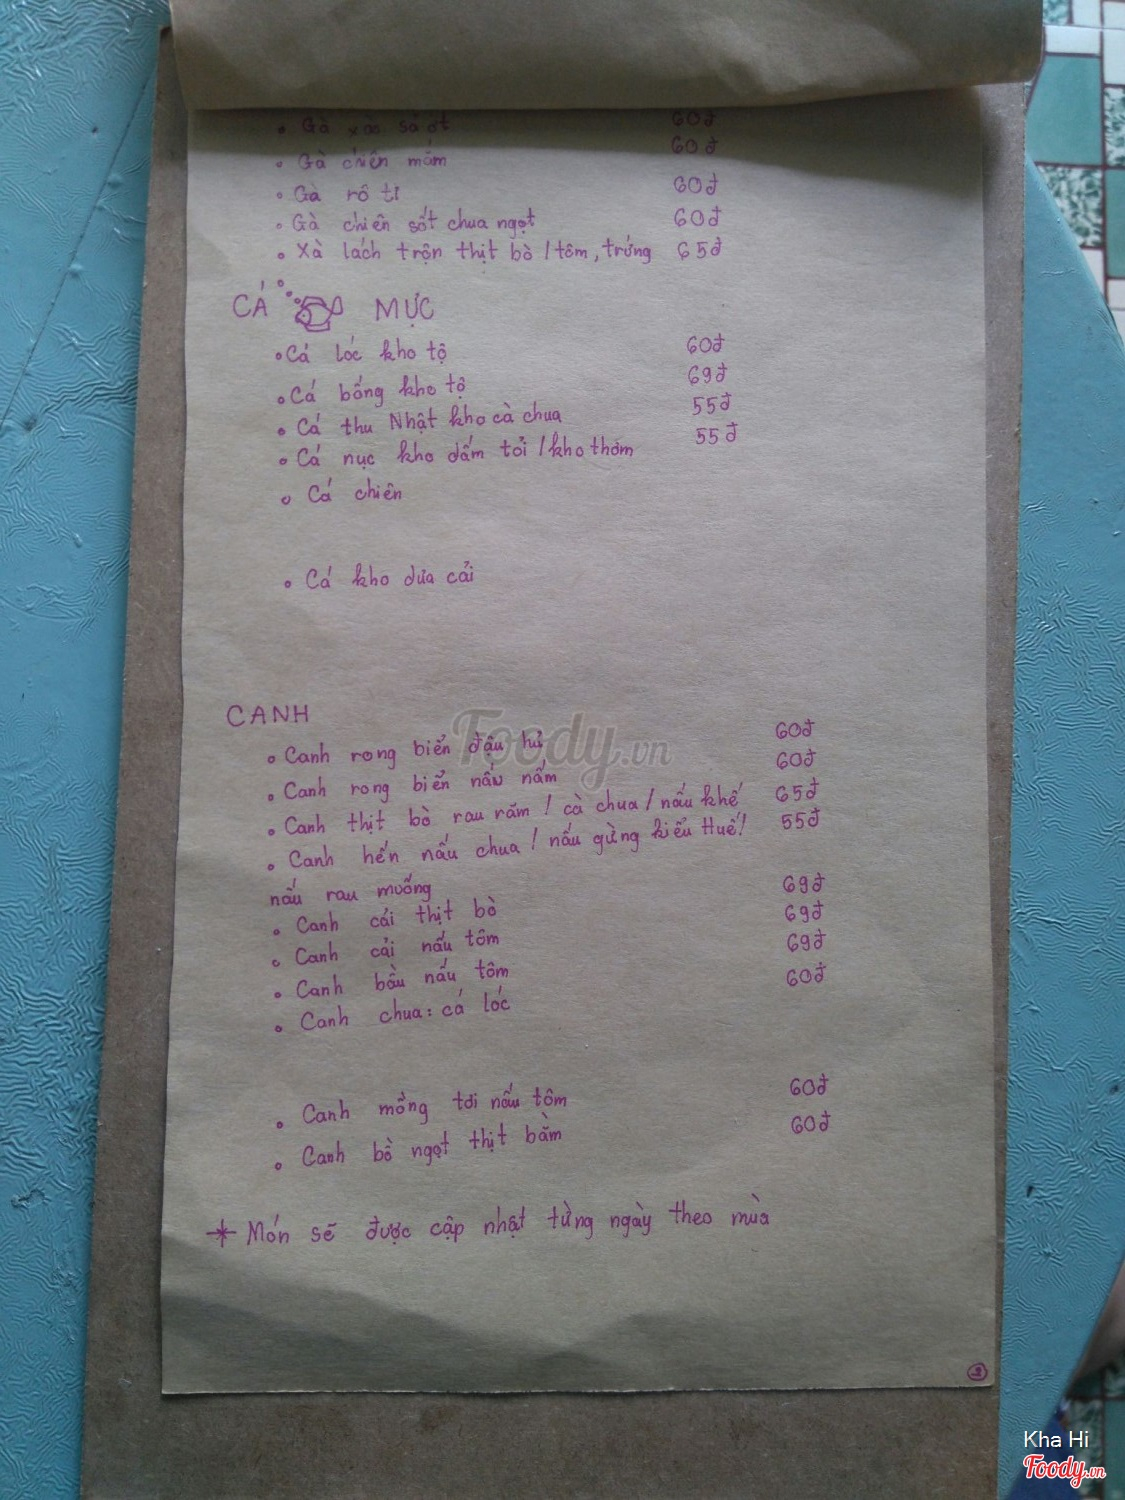 • Gà xào sả ớt 60đ
• Gà chiên mắm 60đ
• Gà rô ti 60đ
• Gà chiên sốt chua ngọt 60đ
• Xà lách trộn thịt bò / tôm, trứng 65đ
CÁ MỰC
• Cá lóc kho tộ 60đ
• Cá bống kho tộ 69đ
• Cá thu Nhật kho cà chua 55đ
• Cá nục kho dấm tỏi / kho thơm 55đ
• Cá chiên
• Cá kho dưa cải
CANH
• Canh rong biển đậu hủ 60đ
• Canh rong biển nấu nấm 60đ
• Canh thịt bò rau răm / cà chua / nấu khế 65đ
• Canh hến nấu chua / nấu gừng kiểu Huế / 55đ
nấu rau muống
• Canh cải thịt bò 69đ
• Canh cải nấu tôm 69đ
• Canh bầu nấu tôm 69đ
• Canh chua: cá lóc 60đ
• Canh mồng tơi nấu tôm 60đ
• Canh bồ ngọt thịt bằm 60đ
* Món sẽ được cập nhật từng ngày theo mùa
Foody.vn
Kha Hi
Foody.vn